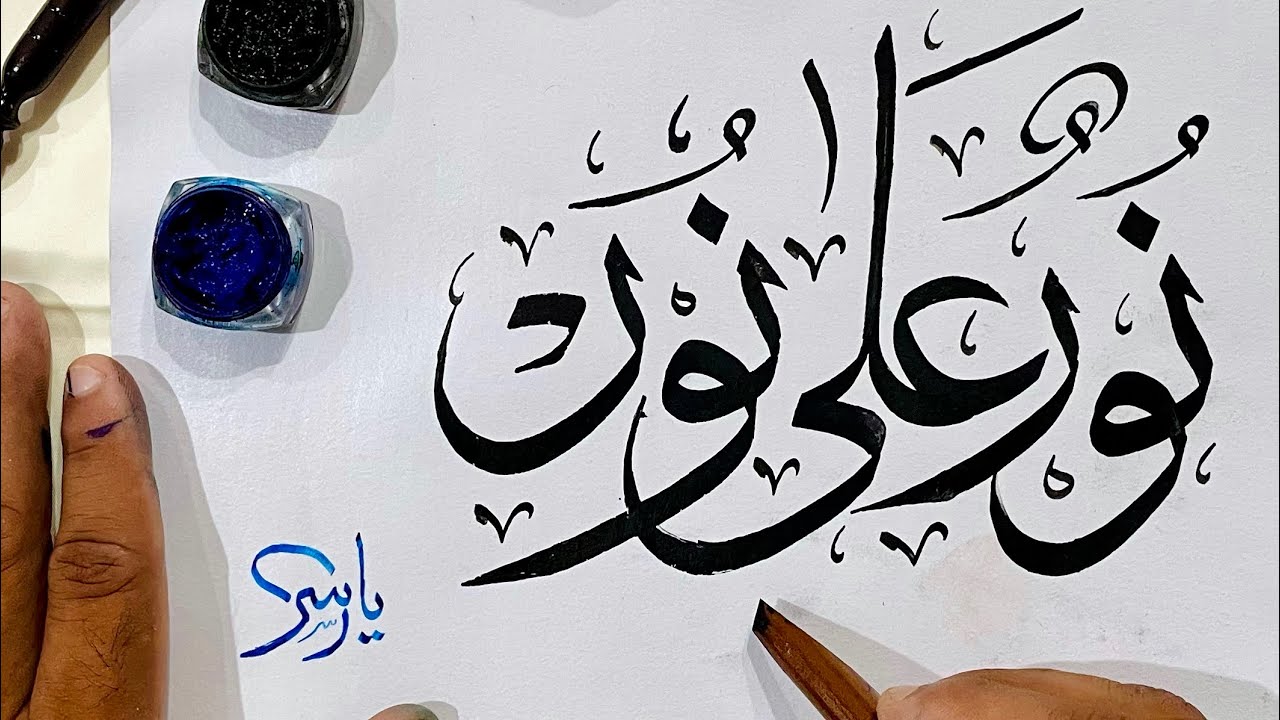 نُورٌ عَلىٰ نُور
ياسر